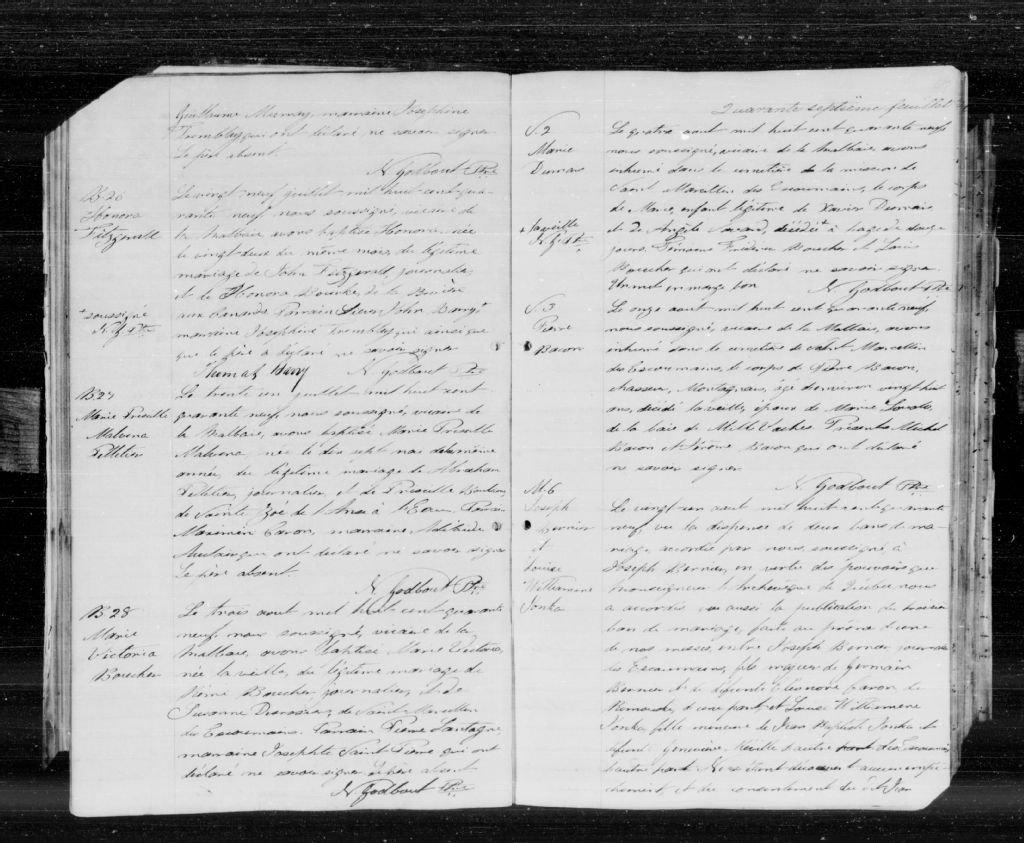 Guillaume Murray, marraine Josephine
Tremblay qui ont déclaré ne savoir signer
Le père absent.
N. Godbout Ptre
B 26
Honora
Fitzgerald
Le vingt neuf juillet mil huit cent qua-
rante neuf nous soussigné, vicaire de
la Malbaie avons baptisé Honora née
le vingt deux du même mois, du légitime
mariage de John Fitzgerald, journalier,
et de Honora Bourke, de la Rivière
+ soussigné
N. G. Ptre
aux Canards Parrain Sieur John Barry +
marraine Josephine Tremblay qui ainsi que
que le père a déclaré ne savoir signer
Thomas Barry N. Godbout Ptre
B 27
Marie Priscille
Malvina
Pelletier
Le trente un juillet mil huit cent
quarante neuf, nous soussigné, vicaire de
la Malbaie, avons baptisé Marie Priscille
Malvina, née le dix sept mai de la même
année, du légitime mariage de Abraham
Pelletier, journalier, et de Priscille
de Sainte Zoé de l'Anse à l'Eau. Parrain
Maximin Caron, marraine Adélaïde
qui ont déclaré ne savoir signer
Le père absent.
N. Godbout Ptre
B 28
Marie
Victoria
Boucher
Le trois aout mil huit cent quarante
neuf, nous soussigné, vicaire de la
Malbaie, avons baptisé Marie Victoria,
née la veille, du légitime mariage de
Rémi Boucher, journalier, et de
Suzanne Desrosiers, de Saint Marcellin
des Escoumains. Parrain Pierre
marraine Josephte Saint Pierre qui ont
déclaré ne savoir signer. Le père absent.
N. Godbout Ptre
Quarante septième feuillet
S. 2
Marie
Dumais
Le quatre aout mil huit cent quarante neuf
nous soussigné, vicaire de la Malbaie, avons
inhumé dans le cimetière de la mission de
Saint Marcellin des Escoumains, le corps
de Marie, enfant légitime de Xavier Dumais
+ la veille
N. G. Ptre
et de Angèle Savard, décédée + à l'age de douze
jours. Témoins Frédéric Boucher et Louis
Boucher qui ont déclaré ne savoir signer.
Un mot en marge bon N. Godbout Ptre
S. 3
Pierre
Bacon
Le onze aout mil huit cent quarante neuf,
nous soussigné, vicaire de la Malbaie, avons
inhumé dans le cimetière de Saint Marcellin
des Escoumains, le corps de Pierre Bacon,
chasseur, Montagnais, agé d'environ vingt huit
ans, décédé la veille, époux de Marie
de la baie de Mille Vaches. Présents Michel
Bacon et Jérôme Bacon qui ont déclaré
ne savoir signer
N. Godbout Ptre
M. 6
Joseph
Bernier
et
Louise
Williamene
Jonka
Le vingt un aout mil huit cent quarante
neuf, vu la dispense de deux bans de ma-
riage, accordée par nous, soussigné à
Joseph Bernier, en vertu des pouvoirs que
Monseigneur l'Archevêque de Québec nous
a accordés, vu aussi la publication du troisième
ban de mariage, faite au prône d'une
de nos messes, entre Joseph Bernier, journalier
des Escoumains, fils majeur de Germain
Bernier et de défunte Eléonore Caron de
Rimouski, d'une part et Louise Williamene
Jonka, fille mineure de Jean Baptiste Jonka et
Geneviève Miville d'autre part des Escoumains
d'autre part. Ne s'étant découvert aucun empê-
chement et du consentement du dit Jean